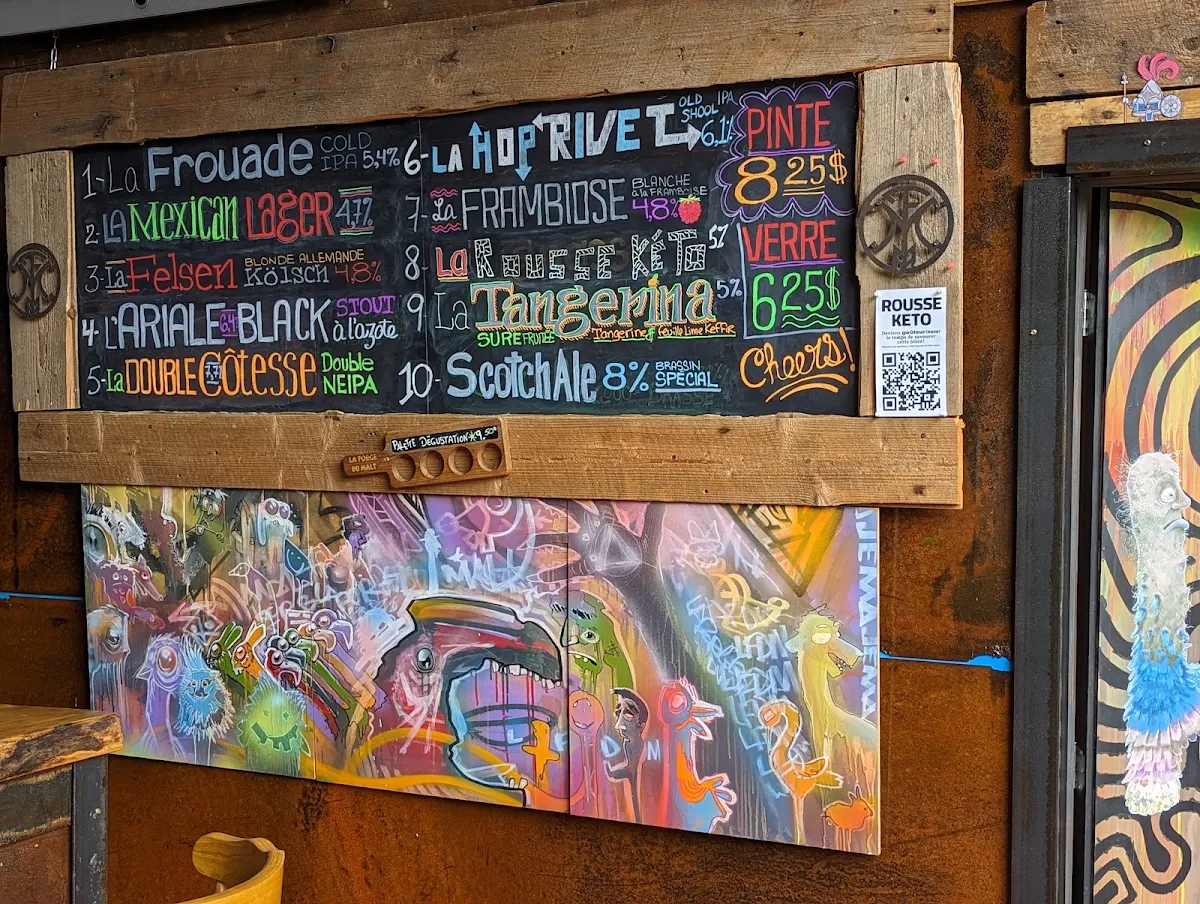 1-La Frouade COLD IPA 5,4%
2-LA MEXICAN LAGER 4,7%
3-La Felsen BLONDE ALLEMANDE KÖLSCH 4.8%
4-L'ARIALE BLACK 6,4 STOUT à l'azote
5-La DOUBLE CÔTESSE 7,7 Double NEIPA
6-LA HOP RIVET OLD SHOOL IPA 6,1%
7-La FRAMBIOSE BLANCHE à la FRAMBOISE 4.8%
8-LA ROUSSE KÉTO 5%
9-La Tangerina 5%
SURE FRUITÉE Tangerine # feuille Lime Keffir
10-ScotchAle 8% BRASSIN SPÉCIAL
PINTE
8 25$
VERRE
6 25$
Cheers!
ROUSSE
KETO
Deviens goûteur(euse)
le temps de savourer
cette bière!
PALETTE DÉGUSTATION 9,50$
LA FORGE
DU MALT
MALT
JEMAJEMA
LEDN